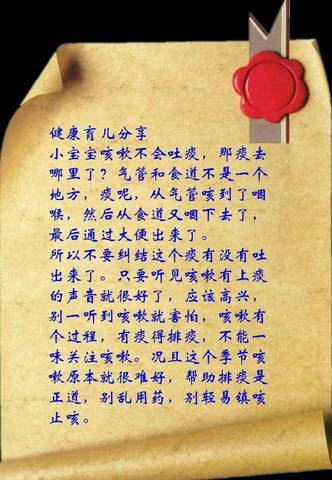 健康育儿分享
小宝宝咳嗽不会吐痰，那痰去
哪里了？气管和食道不是一个
地方，痰呢，从气管咳到了咽
喉，然后从食道又咽下去了，
最后通过大便出来了。
所以不要纠结这个痰有没有吐
出来了。只要听见咳嗽有上痰
的声音就很好了，应该高兴，
别一听到咳嗽就害怕，咳嗽有
个过程，有痰得排痰，不能一
味关注咳嗽。况且这个季节咳
嗽原本就很难好，帮助排痰是
正道，别乱用药，别轻易镇咳
止咳。